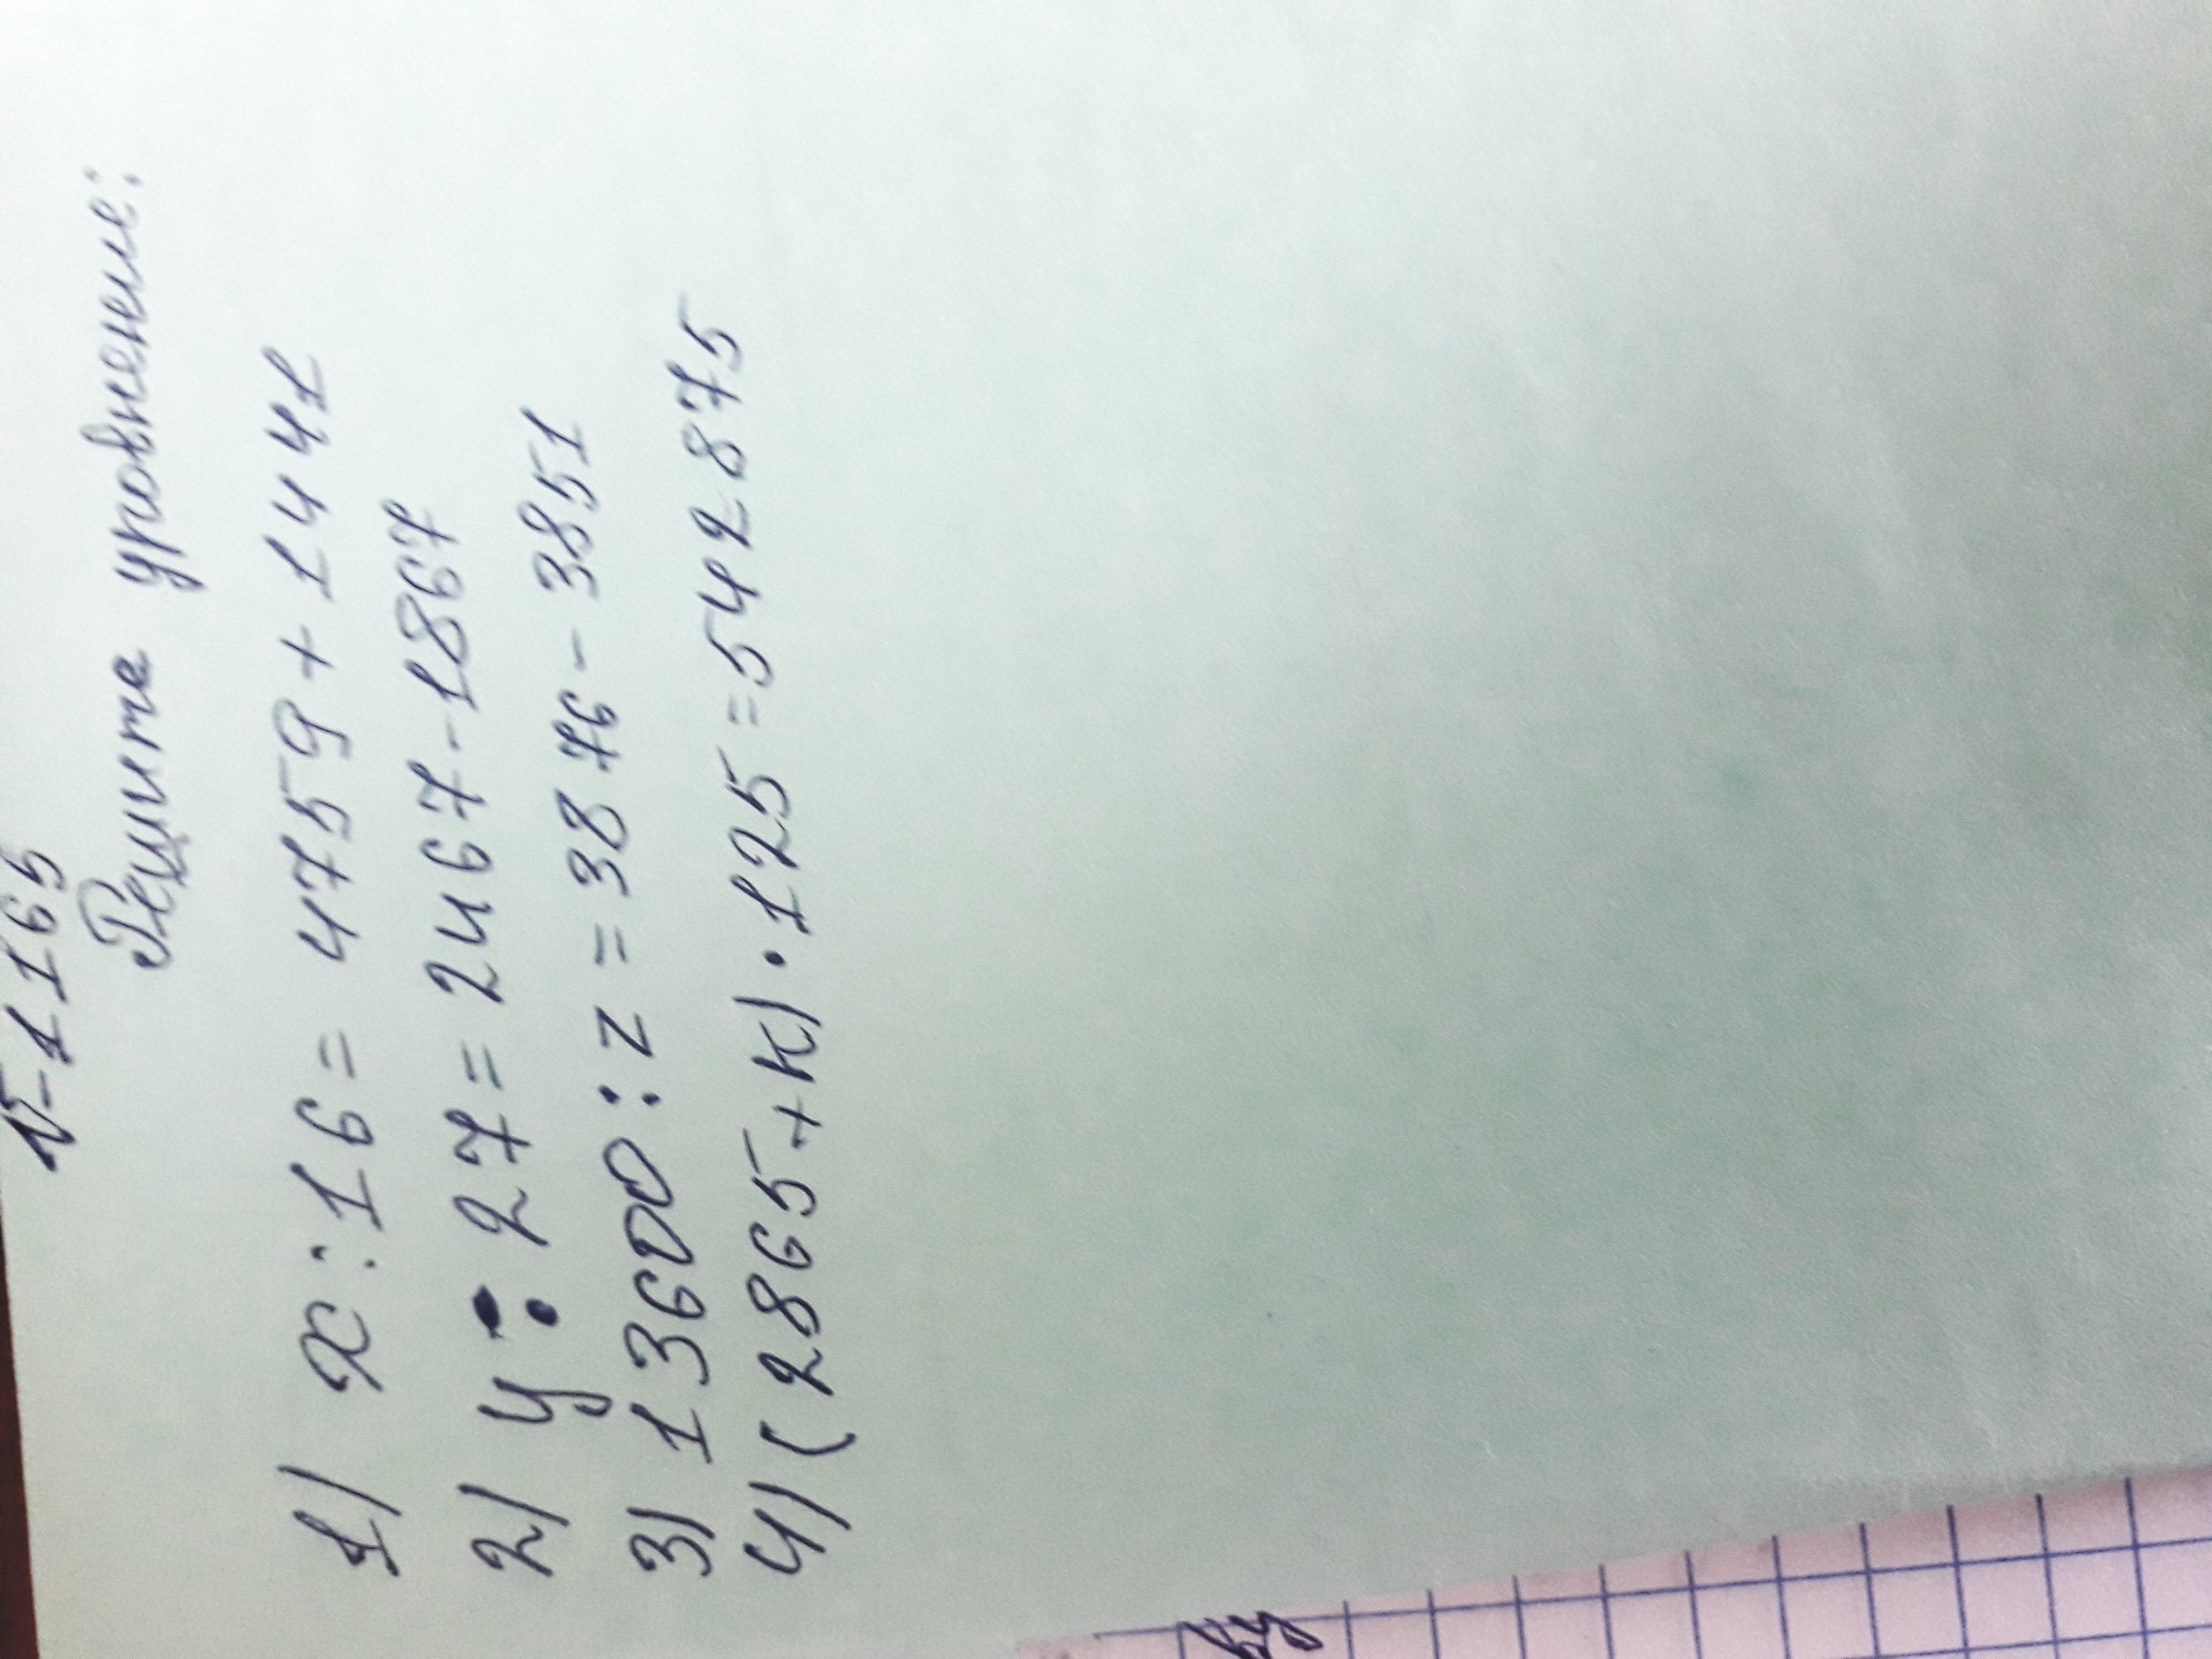 №-1165
Решите уровнение:
1) x:16 = 4759 + 1441
2) y:27 = 2467-1867
3) 13600:z = 3876 - 3851
4) (2865+к)·125 = 542875